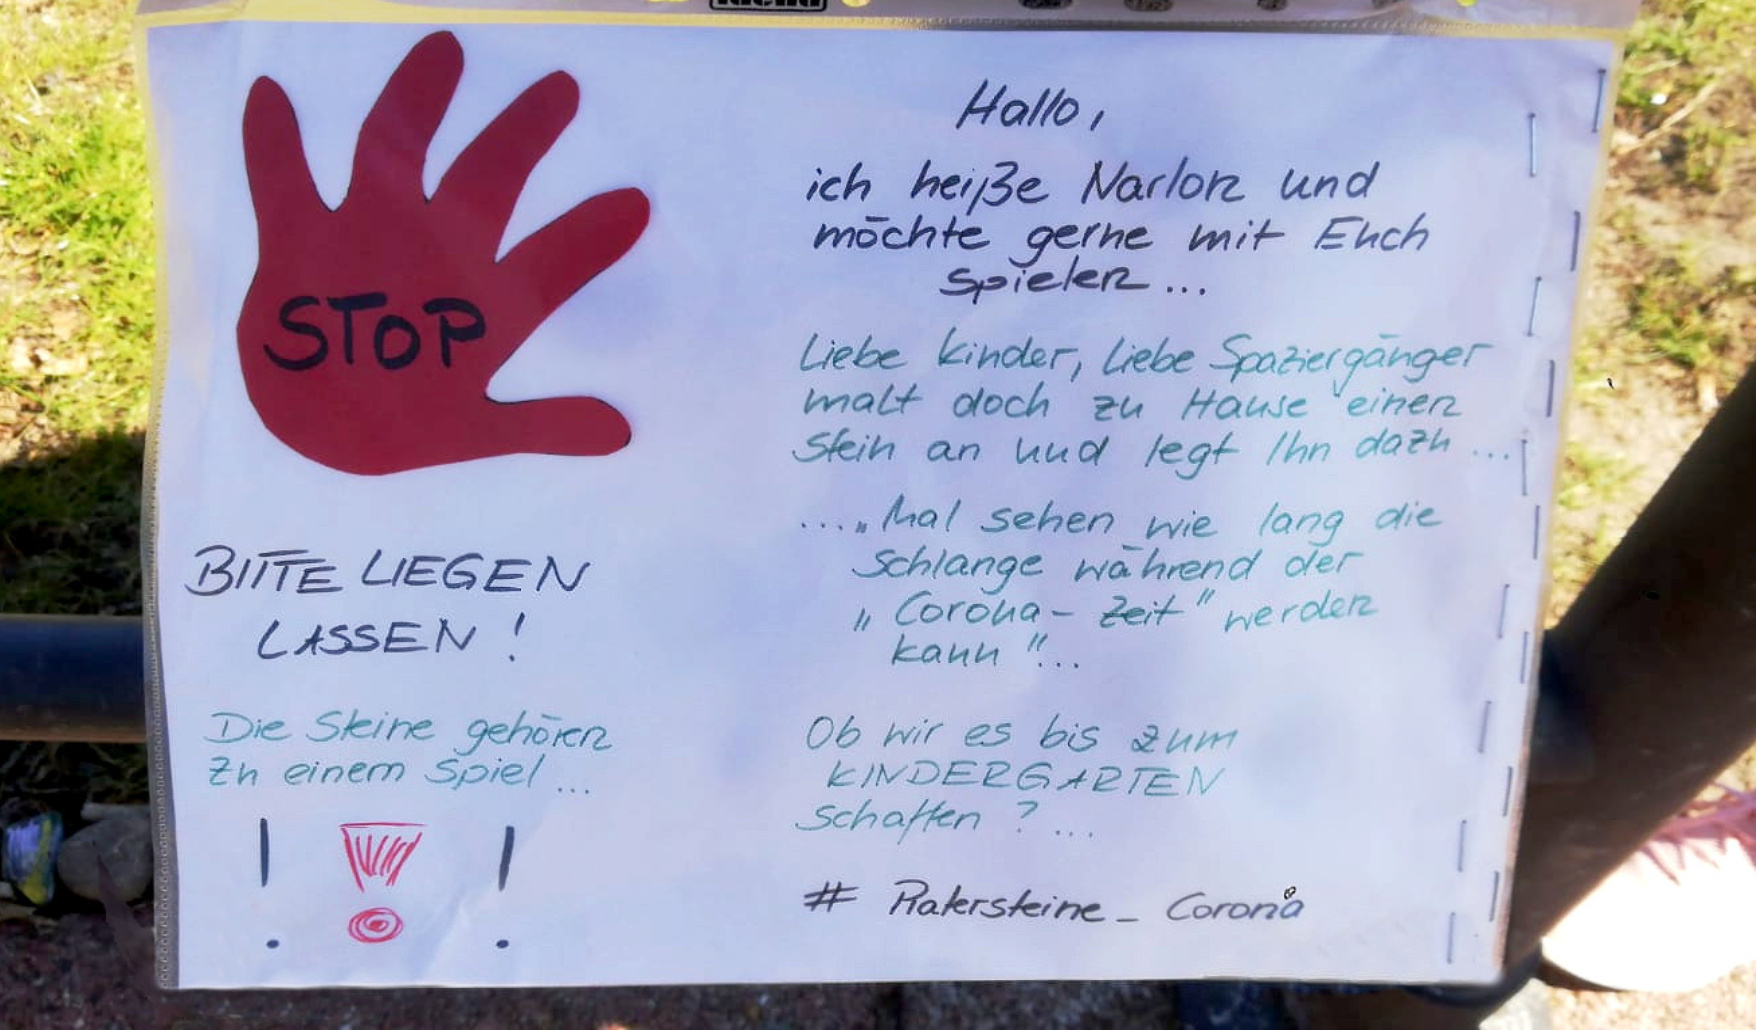 STOP
BITTE LIEGEN
LASSEN !
Die Steine gehören
zu einem Spiel ...
! ! !
Hallo,
ich heiße Narlon und
möchte gerne mit Euch
spielen ...
Liebe Kinder, liebe Spaziergänger
malt doch zu Hause einen
Stein an und legt Ihn dazu ...
.... „Mal sehen wie lang die
Schlange während der
„Corona - Zeit" werden
kann"...
Ob wir es bis zum
KINDERGARTEN
schaffen ? ...
# Ratersteine_Corona